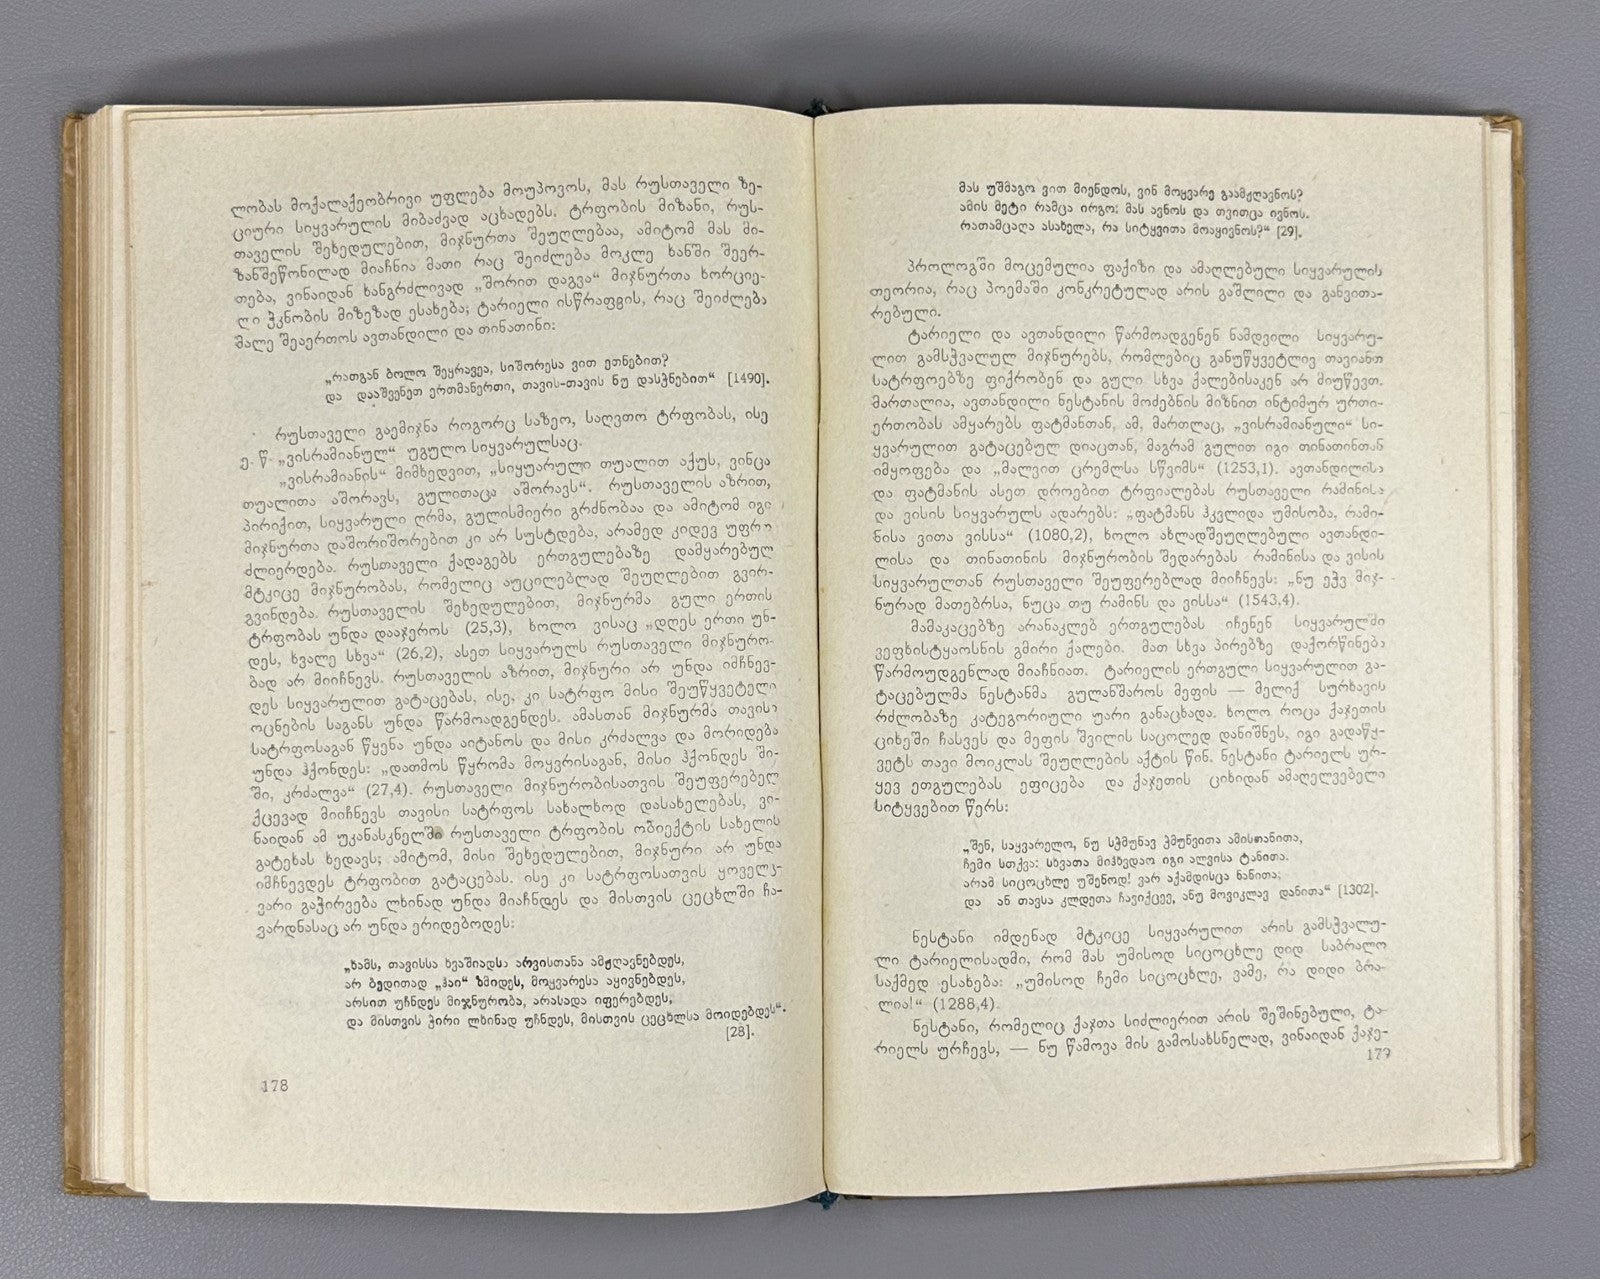 ლობას მოქალაქეობრივი უფლება მოუპოვოს, მას რუსთაველი ზე-
ციური სიყვარულის მიბაძვად აცხადებს. ტრფობის მიზანი, რუს-
თაველის შეხედულებით, მიჯნურთა შეუღლებაა, ამიტომ მას მი-
ზანშეწონილად მიაჩნია მათი რაც შეიძლება მოკლე ხანში შეერ-
თება, ვინაიდან ხანგრძლივად „შორით დაგვა“ მიჯნურთა ხორციე-
ლი ჭკნობის მიზეზად ესახება; ტარიელი ისწრაფვის, რაც შეიძლება
მალე შეაერთოს ავთანდილი და თინათინი:
„რათგან ბოლო შეყრავეა, სიშორესა ვით ეთნებით?
და დააშვენეთ ერთმანერთი, თავის-თავის ნუ დასჭნებით“ [1490].
რუსთაველი გაემიჯნა როგორც საზეო, საღვთო ტრფობას, ისე
ე. წ. „ვისრამიანულ“ უგულო სიყვარულსაც.
„ვისრამიანის“ მიმხედვით, „სიყუარული თუალით აქუს, ვინცა
თუალითა აშორავს, გულითაცა აშორავს“. რუსთაველის აზრით,
პირიქით, სიყვარული ღრმა, გულისმიერი გრძნობაა და ამიტომ იგი
მიჯნურთა დაშორიშორებით კი არ სუსტდება, არამედ კიდევ უფრო
ძლიერდება. რუსთაველი ქადაგებს ერთგულებაზე დამყარებულ
მტკიცე მიჯნურობას, რომელიც აუცილებლად შეუღლებით გვირ-
გვინდება. რუსთაველის შეხედულებით, მიჯნურმა გული ერთის
ტრფობას უნდა დააჯეროს (25,3), ხოლო ვისაც „დღეს ერთი უნ-
დეს, ხვალე სხვა“ (26,2), ასეთ სიყვარულს რუსთაველი მიჯნურო-
ბად არ მიიჩნევს. რუსთაველის აზრით, მიჯნური არ უნდა იმჩნევ-
დეს სიყვარულით გატაცებას, ისე, კი სატრფო მისი შეუწყვეტელი
ოცნების საგანს უნდა წარმოადგენდეს. ამასთან მიჯნურმა თავისი
სატრფოსაგან წყენა უნდა აიტანოს და მისი კრძალვა და მორიდება
უნდა ჰქონდეს: „დათმოს წყრომა მოყვრისაგან, მისი ჰქონდეს ში-
ში, კრძალვა“ (27,4). რუსთაველი მიჯნურობისათვის შეუფერებელ
ქცევად მიიჩნევს თავისი სატრფოს სახალხოდ დასახელებას, ვი-
ნაიდან ამ უკანასკნელში რუსთაველი ტრფობის ობიექტის სახელის
გატეხას ხედავს; ამიტომ, მისი შეხედულებით, მიჯნური არ უნდა
იმჩნევდეს ტრფობით გატაცებას. ისე კი სატრფოსათვის ყოველგ-
ვარი გაჭირვება ლხინად უნდა მიაჩნდეს და მისთვის ცეცხლში ჩა-
ვარდნასაც არ უნდა ერიდებოდეს:
„ხამს, თავისსა ხვაშიადსა არვისთანა ამჟღავნებდეს,
არ ბედითად „ჰაი“ ზმიდეს, მოყვარესა აყივნებდეს,
არსით უჩნდეს მიჯნურობა, არასადა იფერებდეს,
და მისთვის ჭირი ლხინად უჩნდეს, მისთვის ცეცხლსა მოიდებდეს“.
[28].
178
მას უშმაგო ვით მიენდოს, ვინ მოყვარე გაამჟღავნოს?
ამის მეტი რამცა ირგო: მას ავნოს და თვითცა ივნოს.
რათამცაღა ასახელა, რა სიტყვითა მოაყივნოს?“ [29].
პროლოგში მოცემულია ფაქიზი და ამაღლებული სიყვარულის
თეორია, რაც პოემაში კონკრეტულად არის გაშლილი და განვითა-
რებული.
ტარიელი და ავთანდილი წარმოადგენენ ნამდვილი სიყვარუ-
ლით გამსჭვალულ მიჯნურებს, რომლებიც განუწყვეტლივ თავიანთ
სატრფოებზე ფიქრობენ და გული სხვა ქალებისაკენ არ მიუწევთ.
მართალია, ავთანდილი ნესტანის მოძებნის მიზნით ინტიმურ ურთი-
ერთობას ამყარებს ფატმანთან, ამ, მართლაც, „ვისრამიანული“ სი-
ყვარულით გატაცებულ დიაცთან, მაგრამ გულით იგი თინათინთან
იმყოფება და „მალვით ცრემლსა სწვიმს“ (1253,1). ავთანდილისა
და ფატმანის ასეთ დროებით ტრფიალებას რუსთაველი რამინისა
და ვისის სიყვარულს ადარებს: „ფატმანს ჰკვლიდა უმისობა, რამი-
ნისა ვითა ვისსა“ (1080,2), ხოლო ახლადშეუღლებული ავთანდი-
ლისა და თინათინის მიჯნურობის შედარებას რამინისა და ვისის
სიყვარულთან რუსთაველი შეუფერებლად მიიჩნევს: „ნუ ეჭვ მიჯ-
ნურად მათებრსა, ნუცა თუ რამინს და ვისსა“ (1543,4).
მამაკაცებზე არანაკლებ ერთგულებას იჩენენ სიყვარულში
ვეფხისტყაოსნის გმირი ქალები. მათ სხვა პირებზე დაქორწინება
წარმოუდგენლად მიაჩნიათ. ტარიელის ერთგული სიყვარულით გა-
ტაცებულმა ნესტანმა გულანშაროს მეფის — მელიქ სურხავის
რძლობაზე კატეგორიული უარი განაცხადა. ხოლო როცა ქაჯეთის
ციხეში ჩასვეს და მეფის შვილის საცოლედ დანიშნეს, იგი გადაწყ-
ვეტს თავი მოიკლას შეუღლების აქტის წინ. ნესტანი ტარიელს ურ-
ყევ ეთგულებას ეფიცება და ქაჯეთის ციხიდან ამაღელვებელი
სიტყვებით წერს:
„შენ, საყვარელო, ნუ სჭმუნავ ჭმუნვითა ამისთანითა,
ჩემი სთქვა: სხვათა მიჰხვდაო იგი ალვისა ტანითა.
არამ სიცოცხლე უშენოდ! ვარ აქამდისცა ნანითა;
და ან თავსა კლდეთა ჩავიქცევ, ანუ მოვიკლავ დანითა“ [1302].
ნესტანი იმდენად მტკიცე სიყვარულით არის გამსჭვალუ-
ლი ტარიელისადმი, რომ მას უმისოდ სიცოცხლე დიდ საბრალო
საქმედ ესახება: „უმისოდ ჩემი სიცოცხლე, ვამე, რა დიდი ბრა-
ლია!“ (1288,4).
ნესტანი, რომელიც ქაჯთა სიძლიერით არის შეშინებული, ტა-
რიელს ურჩევს, — ნუ წამოვა მის გამოსახსნელად, ვინაიდან ქაჯე-
179